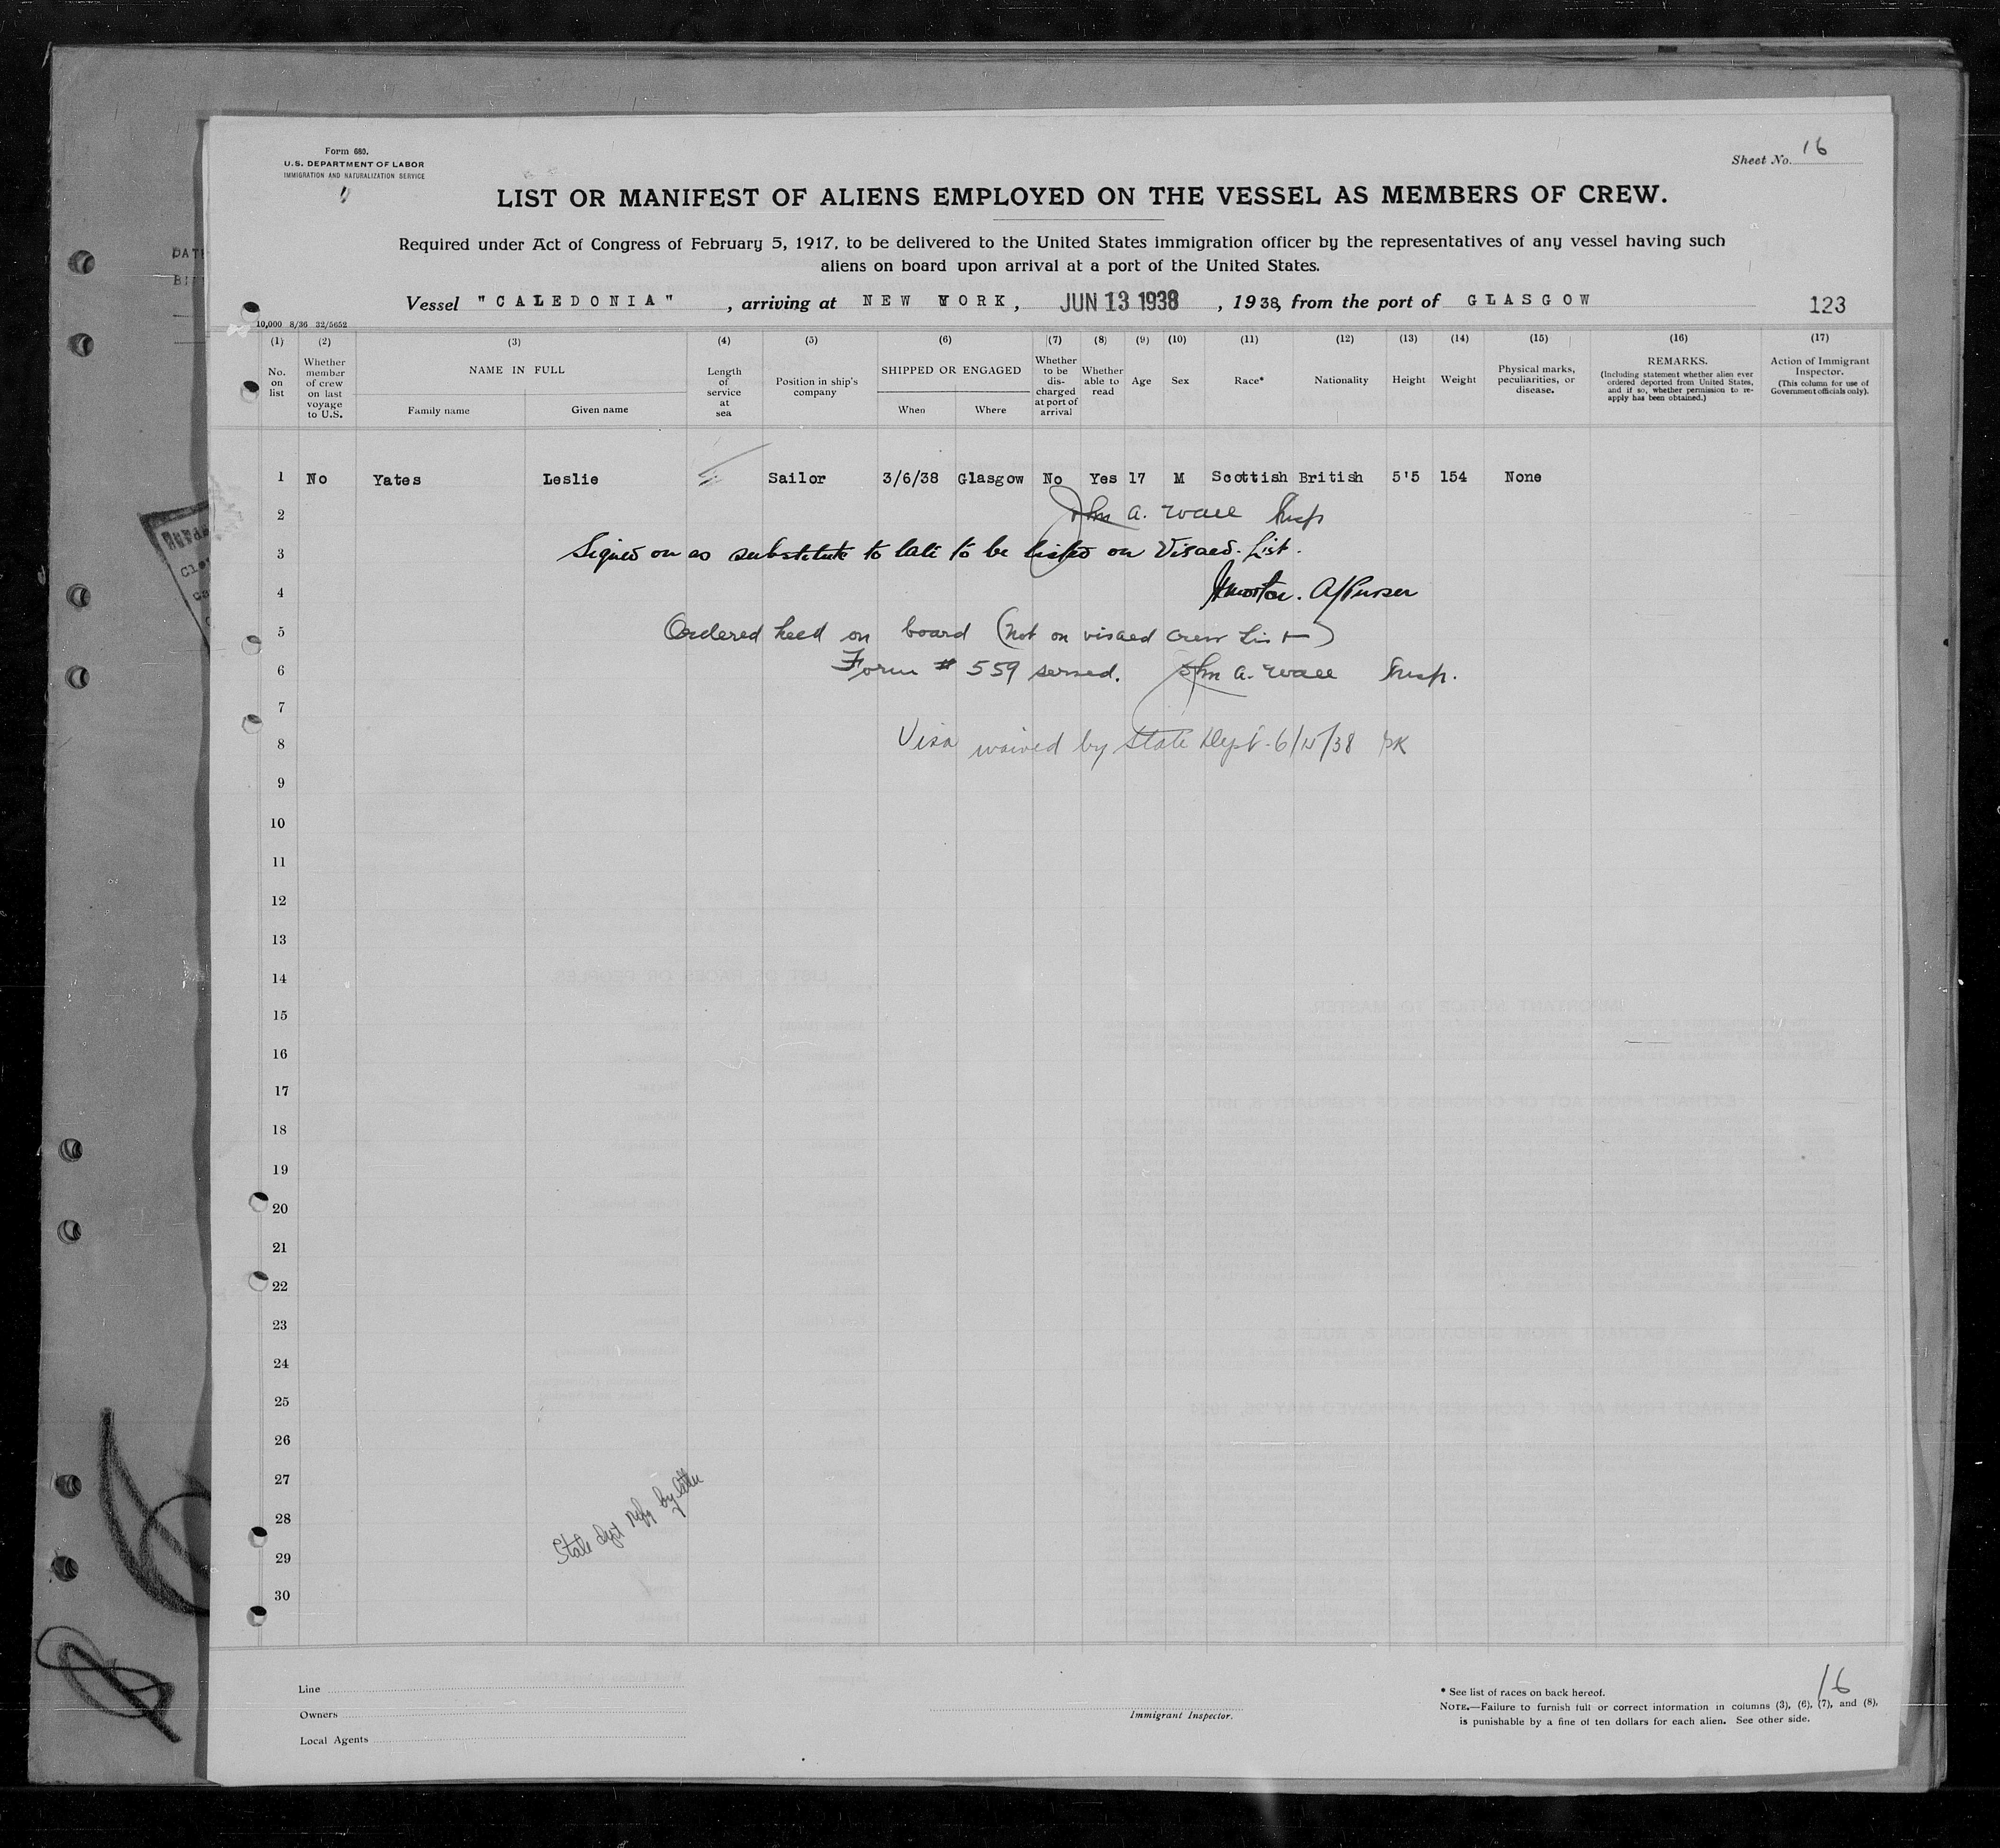 Form 680.
U.S. DEPARTMENT OF LABOR
IMMIGRATION AND NATURALIZATION SERVICE
Sheet No. 16
LIST OR MANIFEST OF ALIENS EMPLOYED ON THE VESSEL AS MEMBERS OF CREW.
Required under Act of Congress of February 5, 1917, to be delivered to the United States immigration officer by the representatives of any vessel having such
aliens on board upon arrival at a port of the United States.
Vessel "CALEDONIA", arriving at NEW YORK, JUN 13 1938, 1938, from the port of GLASGOW
123
10,000 8/36 32/5652
(1) (2) (3) (4) (5) (6) (7) (8) (9) (10) (11) (12) (13) (14) (15) (16) (17)
No. on list
Whether member of crew on last voyage to U.S.
NAME IN FULL
Family name
Given name
Length of service at sea
Position in ship's company
SHIPPED OR ENGAGED
When
Where
Whether to be discharged at port of arrival
Whether able to read
Age
Sex
Race*
Nationality
Height
Weight
Physical marks, peculiarities, or disease.
REMARKS.
(Including statement whether alien ever ordered deported from United States, and if so, whether permission to reapply has been obtained.)
Action of Immigrant Inspector.
(This column for use of Government officials only).
1 No Yates Leslie Sailor 3/6/38 Glasgow No Yes 17 M Scottish British 5'5 154 None
2 John A. Wall Insp
3 Signed on as substitute to late to be listed on Visaed. List.
4 A/Purser
5 Ordered held on board (not on visaed crew List)
6 Form # 559 served. John A. Wall Insp.
7
8 Visa waived by State Dept. 6/15/38
9
10
11
12
13
14
15
16
17
18
19
20
21
22
23
24
25
26
27
28
29
30
State Dept by letter
Line
Owners
Local Agents
Immigrant Inspector.
16
* See list of races on back hereof.
NOTE.—Failure to furnish full or correct information in columns (3), (6), (7), and (8),
is punishable by a fine of ten dollars for each alien. See other side.